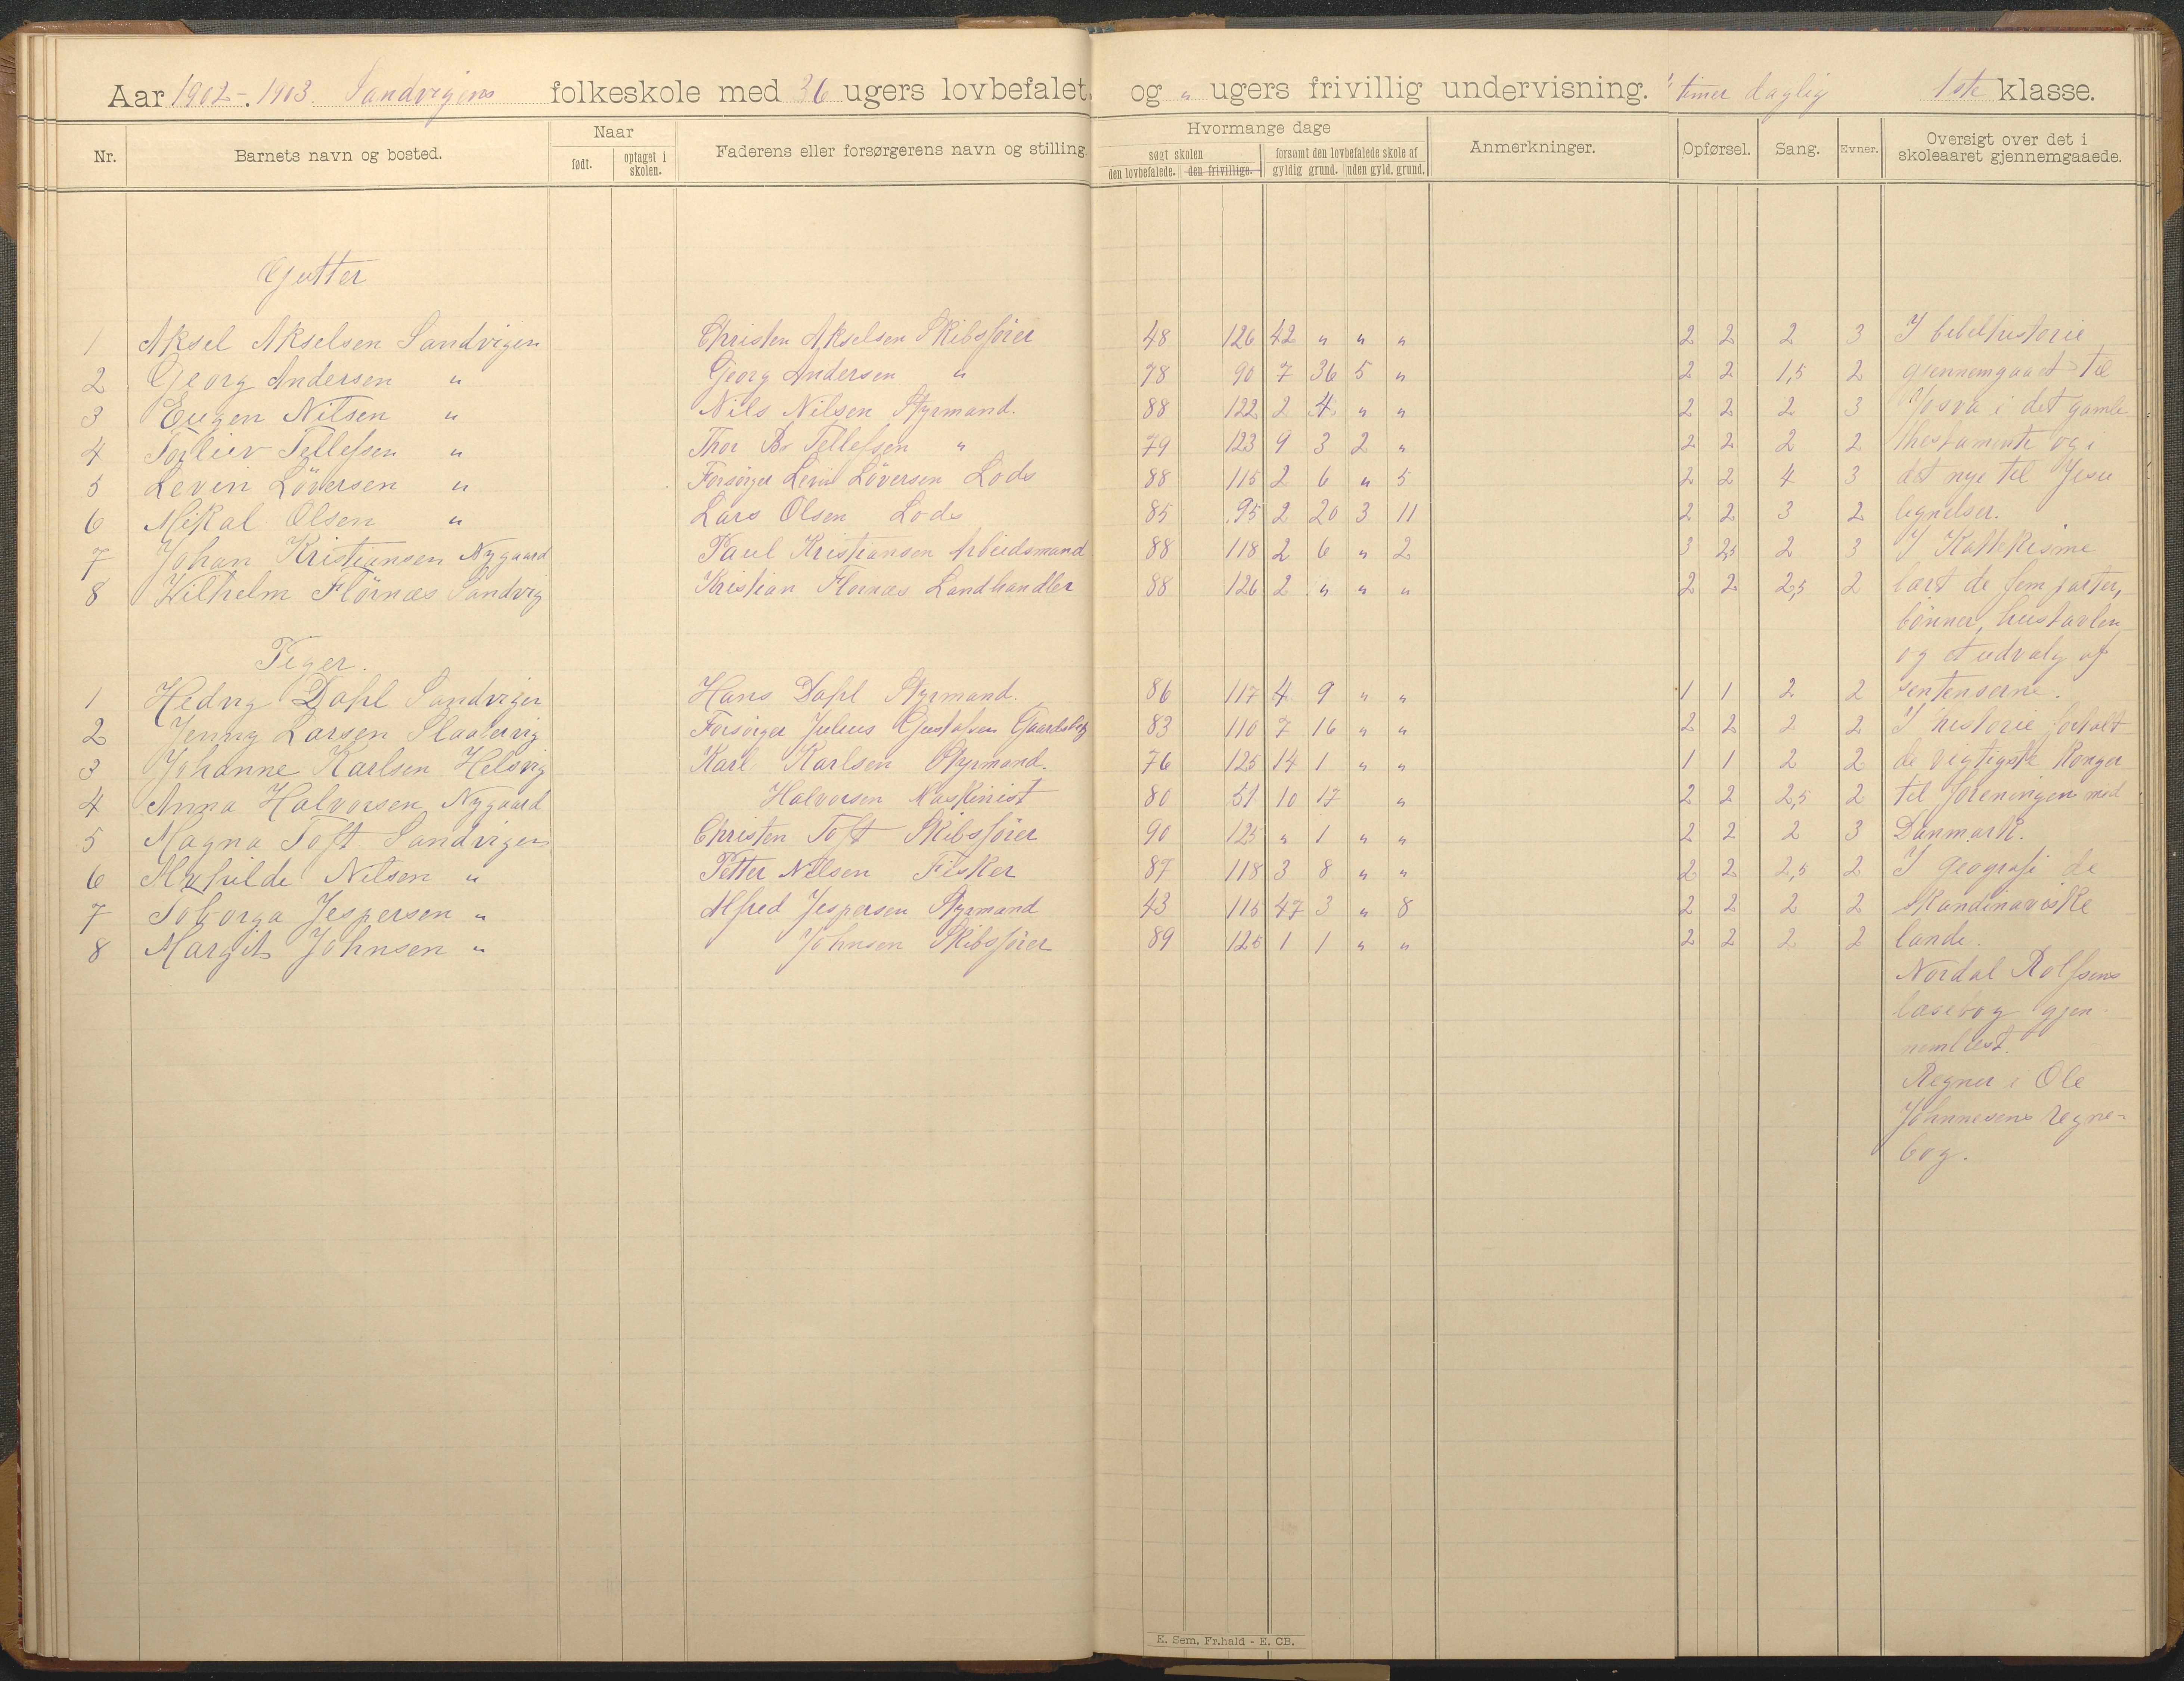 Aar 1902-1903. Sandvigens folkeskole med 36 ugers lovbefalet og " ugers frivillig undervisning. timer daglig 1ste klasse.
Nr. Barnets navn og bosted. Naar født. optaget i skolen. Faderens eller forsørgerens navn og stilling.
Hvormange dage søgt skolen den lovbefalede. den frivillige. forsømt den lovbefalede skole af gyldig grund. uden gyld. grund. Anmerkninger. Opførsel. Sang. Evner. Oversigt over det i skoleaaret gjennemgaaede.
Gutter
1 Aksel Akselsen Sandvigen Christen Akselsen Skibsfører 48 126 42 " " " 2 2 2 3 I bibelhistorie
2 Georg Andersen " Georg Andersen " 78 90 7 36 5 " 2 2 1,5 2 gjennemgaaet til
3 Eugen Nilsen " Nils Nilsen Styrmand. 88 122 2 4 " " 2 2 2 3 Josva i det gamle
4 Torleiv Tellefsen " Thor B. Tellefsen " 79 123 9 3 2 " 2 2 2 2 thestamente og i
5 Levin Löversen " Forsörger Levin Löversen Lods 88 115 2 6 " 5 2 2 4 3 det nye til Jesu
6 Mikal Olsen " Lars Olsen Lods 85 95 2 20 3 11 2 2 3 2 lignelser.
7 Johan Kristiansen Nygaard Paul Kristiansen Arbeidsmand 88 118 2 6 " 2 3 2,5 2 3 I Katekisme
8 Wilhelm Flörnæs Sandvig Kristian Flornæs Landhandler 88 126 2 " " " 2 2 2,5 2 lært de fem parter,
bönner, hustavlen
og et udvalg af
Piger.
1 Hedvig Dahl Sandvigen Hans Dahl Styrmand. 86 117 4 9 " " 1 1 2 2 sentenserne.
2 Jenny Larsen Forsörger Julius Gustavsen 83 110 7 16 " " 2 2 2 2 I historie fortalt
3 Johanne Karlsen Helsvig Karl Karlsen Styrmand. 76 125 14 1 " " 1 1 2 2 de vigtigste Konger
4 Anna Halvorsen Nygaard Halvorsen Maskinist 80 51 10 17 " 2 2 2,5 2 til foreningen med
5 Magna Toft Sandvigen Christen Toft Skibsfører 90 125 " 1 " " 2 2 2 3 Danmark.
6 Nilsen " Petter Nilsen Fisker 87 118 3 8 " " 2 2 2,5 2 I geografi de
7 Solborga Jespersen " Alfred Jespersen Styrmand 43 115 47 3 " 8 2 2 2 2 Skandinaviske
8 Margit Johnsen " Johnsen Skibsfører 89 125 1 1 " " 2 2 2 2 lande.
Nordal Rolfsens
læsebog gjen-
nemlæst.
Regner i Ole
Johnnesens regne-
bog.
E. Sem, Fr.hald - E. CB.